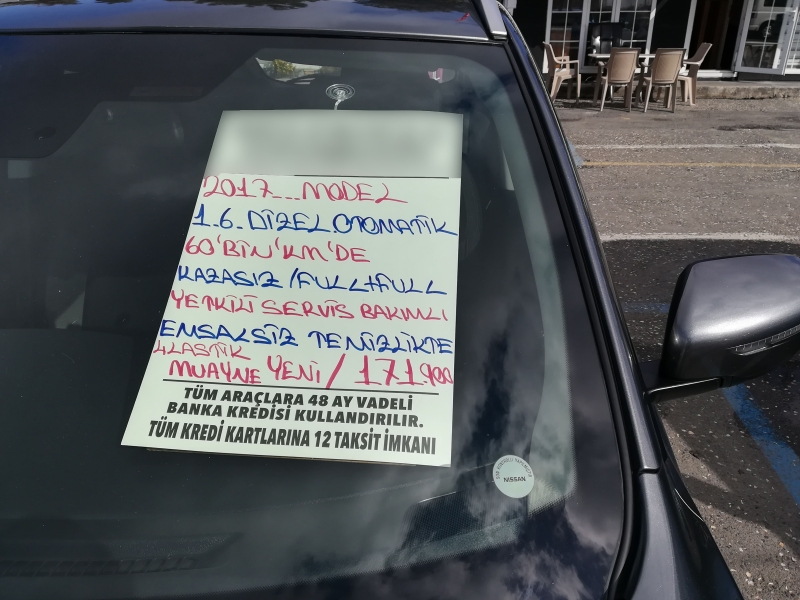 2017...MODEL
1.6.DİZEL OTOMATİK
60'BİN'KM'DE
KAZASIZ/FULL+FULL
YETKİLİ SERVİS BAKIMLI
EMSALSİZ TEMİZLİKTE
4 LASTİK
MUAYNE YENİ / 171.900
TÜM ARAÇLARA 48 AY VADELİ
BANKA KREDİSİ KULLANDIRILIR.
TÜM KREDİ KARTLARINA 12 TAKSİT İMKANI
NISSAN